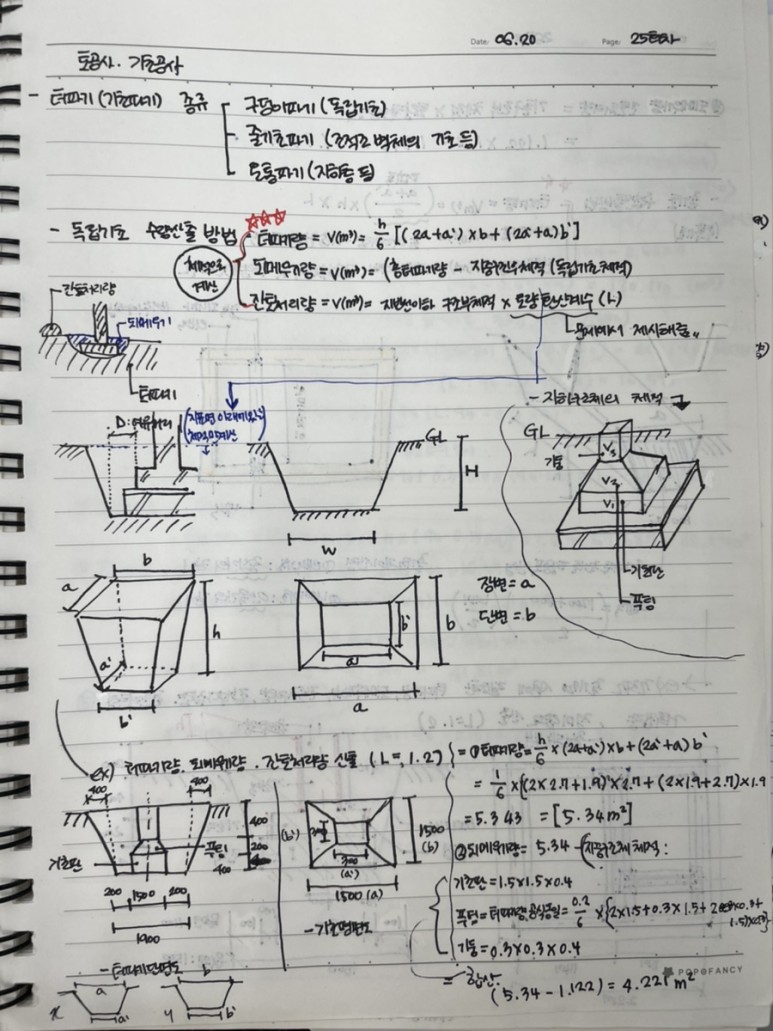 Date: 06.20 Page: 25
토공사. 기초공사
- 터파기(기초파기) 종류
구덩이파기(독립기초)
줄기초파기 (조적조 벽체의 기초 등)
온통파기(지하층 등)
- 독립기초 수량산출 방법
체적으로 계산
☆☆☆
터파기량 = V(m³) = h/6 [(2a+a')×b+(2a'+a)b']
되메우기량 = V(m³) = (총터파기량 - 지하구조부체적(독립기초체적)
잔토처리량 = V(m³) = 지반선이하 구조부체적 × 토량환산계수(L)
문제에서 제시해줌..
잔토처리량
되메우기
터파기
D: 여유
GL
H
W
- 지하구조체의 체적
GL
기둥
V3
V2
V1
기초판
푸팅
장변=a
단변=b
a
b
h
a'
b'
b'
b
a'
a
ex) 터파기량. 되메우기량. 잔토처리량 산출 (L=1.2)
= ①터파기량= h/6 ×(2a+a')×b+(2a'+a)b'
= 1/6 ×{(2×2.7+1.9)×2.7+(2×1.9+2.7)×1.9
= 5.343 = [5.34m²]
②되메우기량= 5.34 - (지하구조체 체적:
기초판=1.5×1.5×0.4
기둥=0.3×0.3×0.4
= 합산
(5.34-1.122) = 4.221m²
400
400
400
200
400
기초판
푸팅
200 1500 200
1900
(b')
300
(a')
1500
(b)
1500 (a)
- 기초평면도
- 터파기단면도
a
b
x
a'
y
b'
POPOFANCY